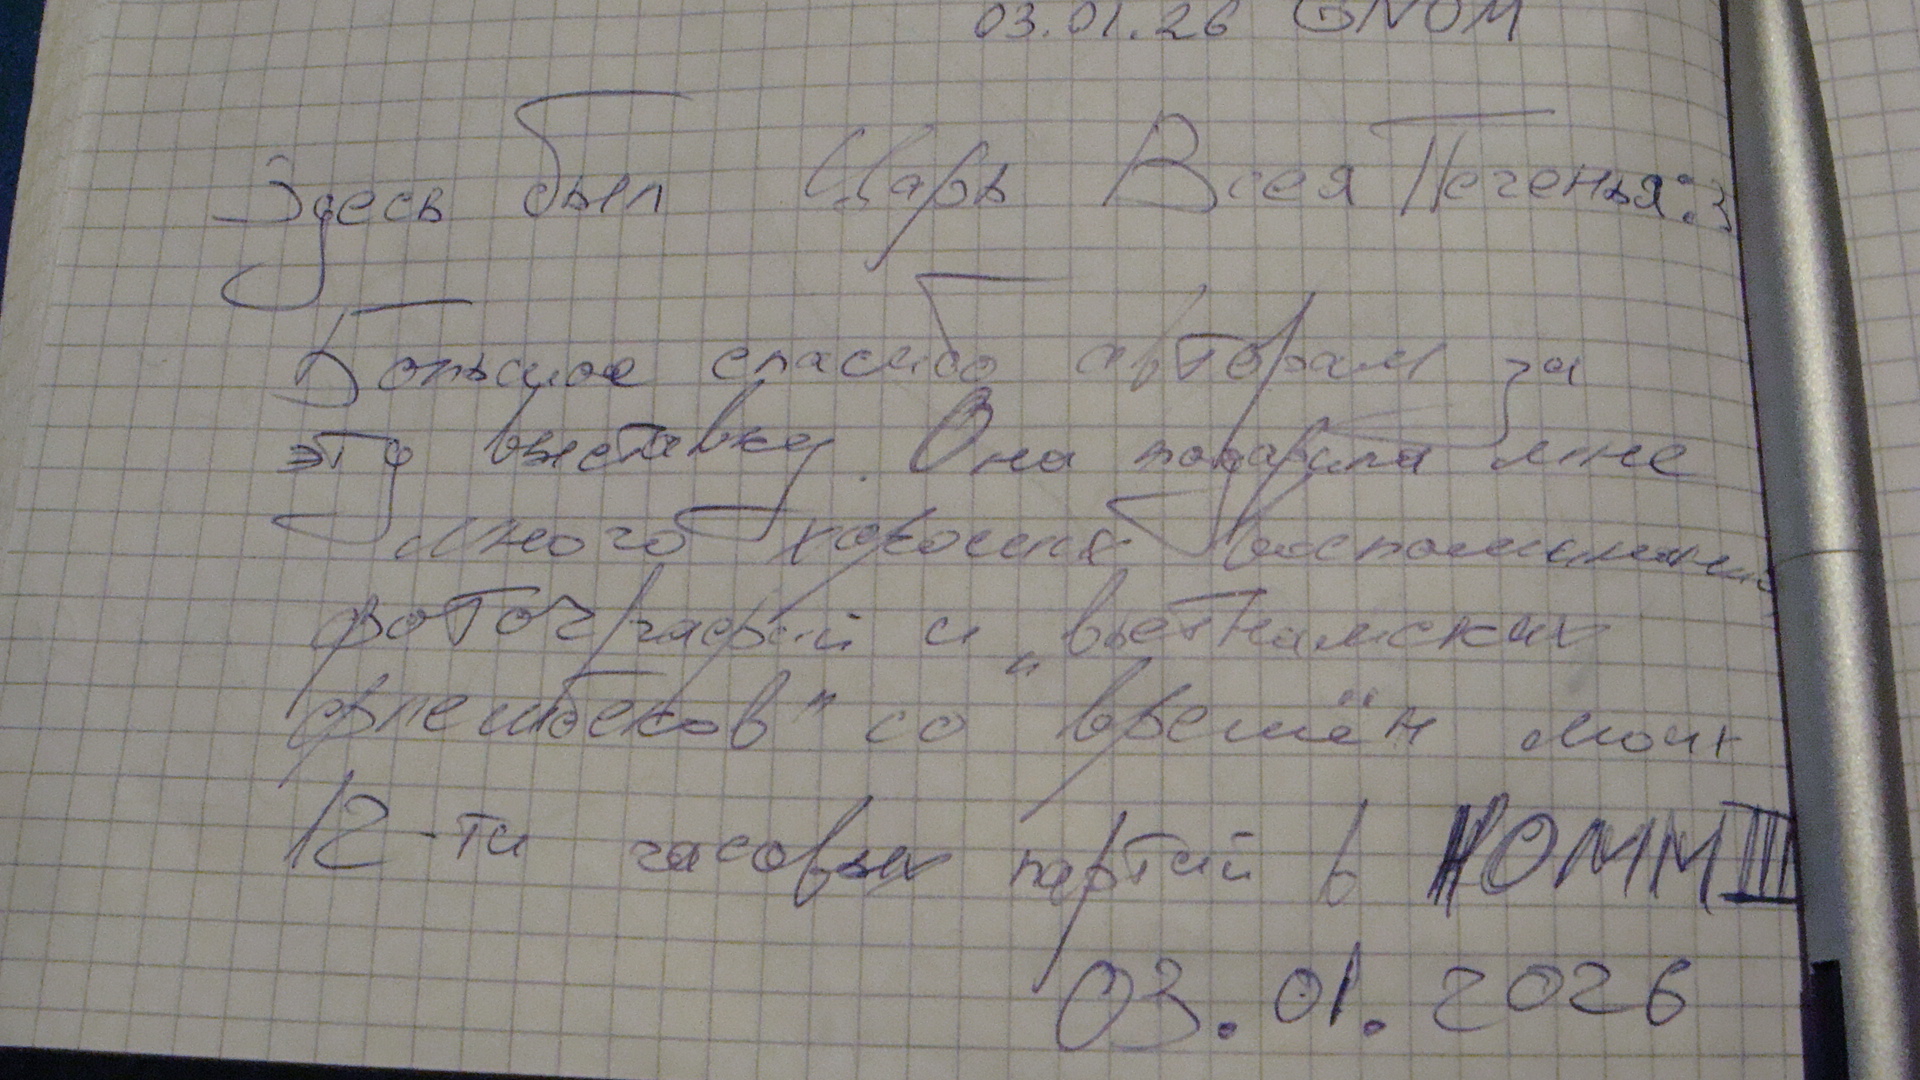 03.01.26 GNOM
Здесь был Царь Всея Печенья :3
Большое спасибо авторам за
эту выставку. Она подарила мне
много хороших воспоминаний
фотографий и „вьетнамских
флешбеков" со времён моих
12-ти часовых партий в HOMM III
03.01.2026